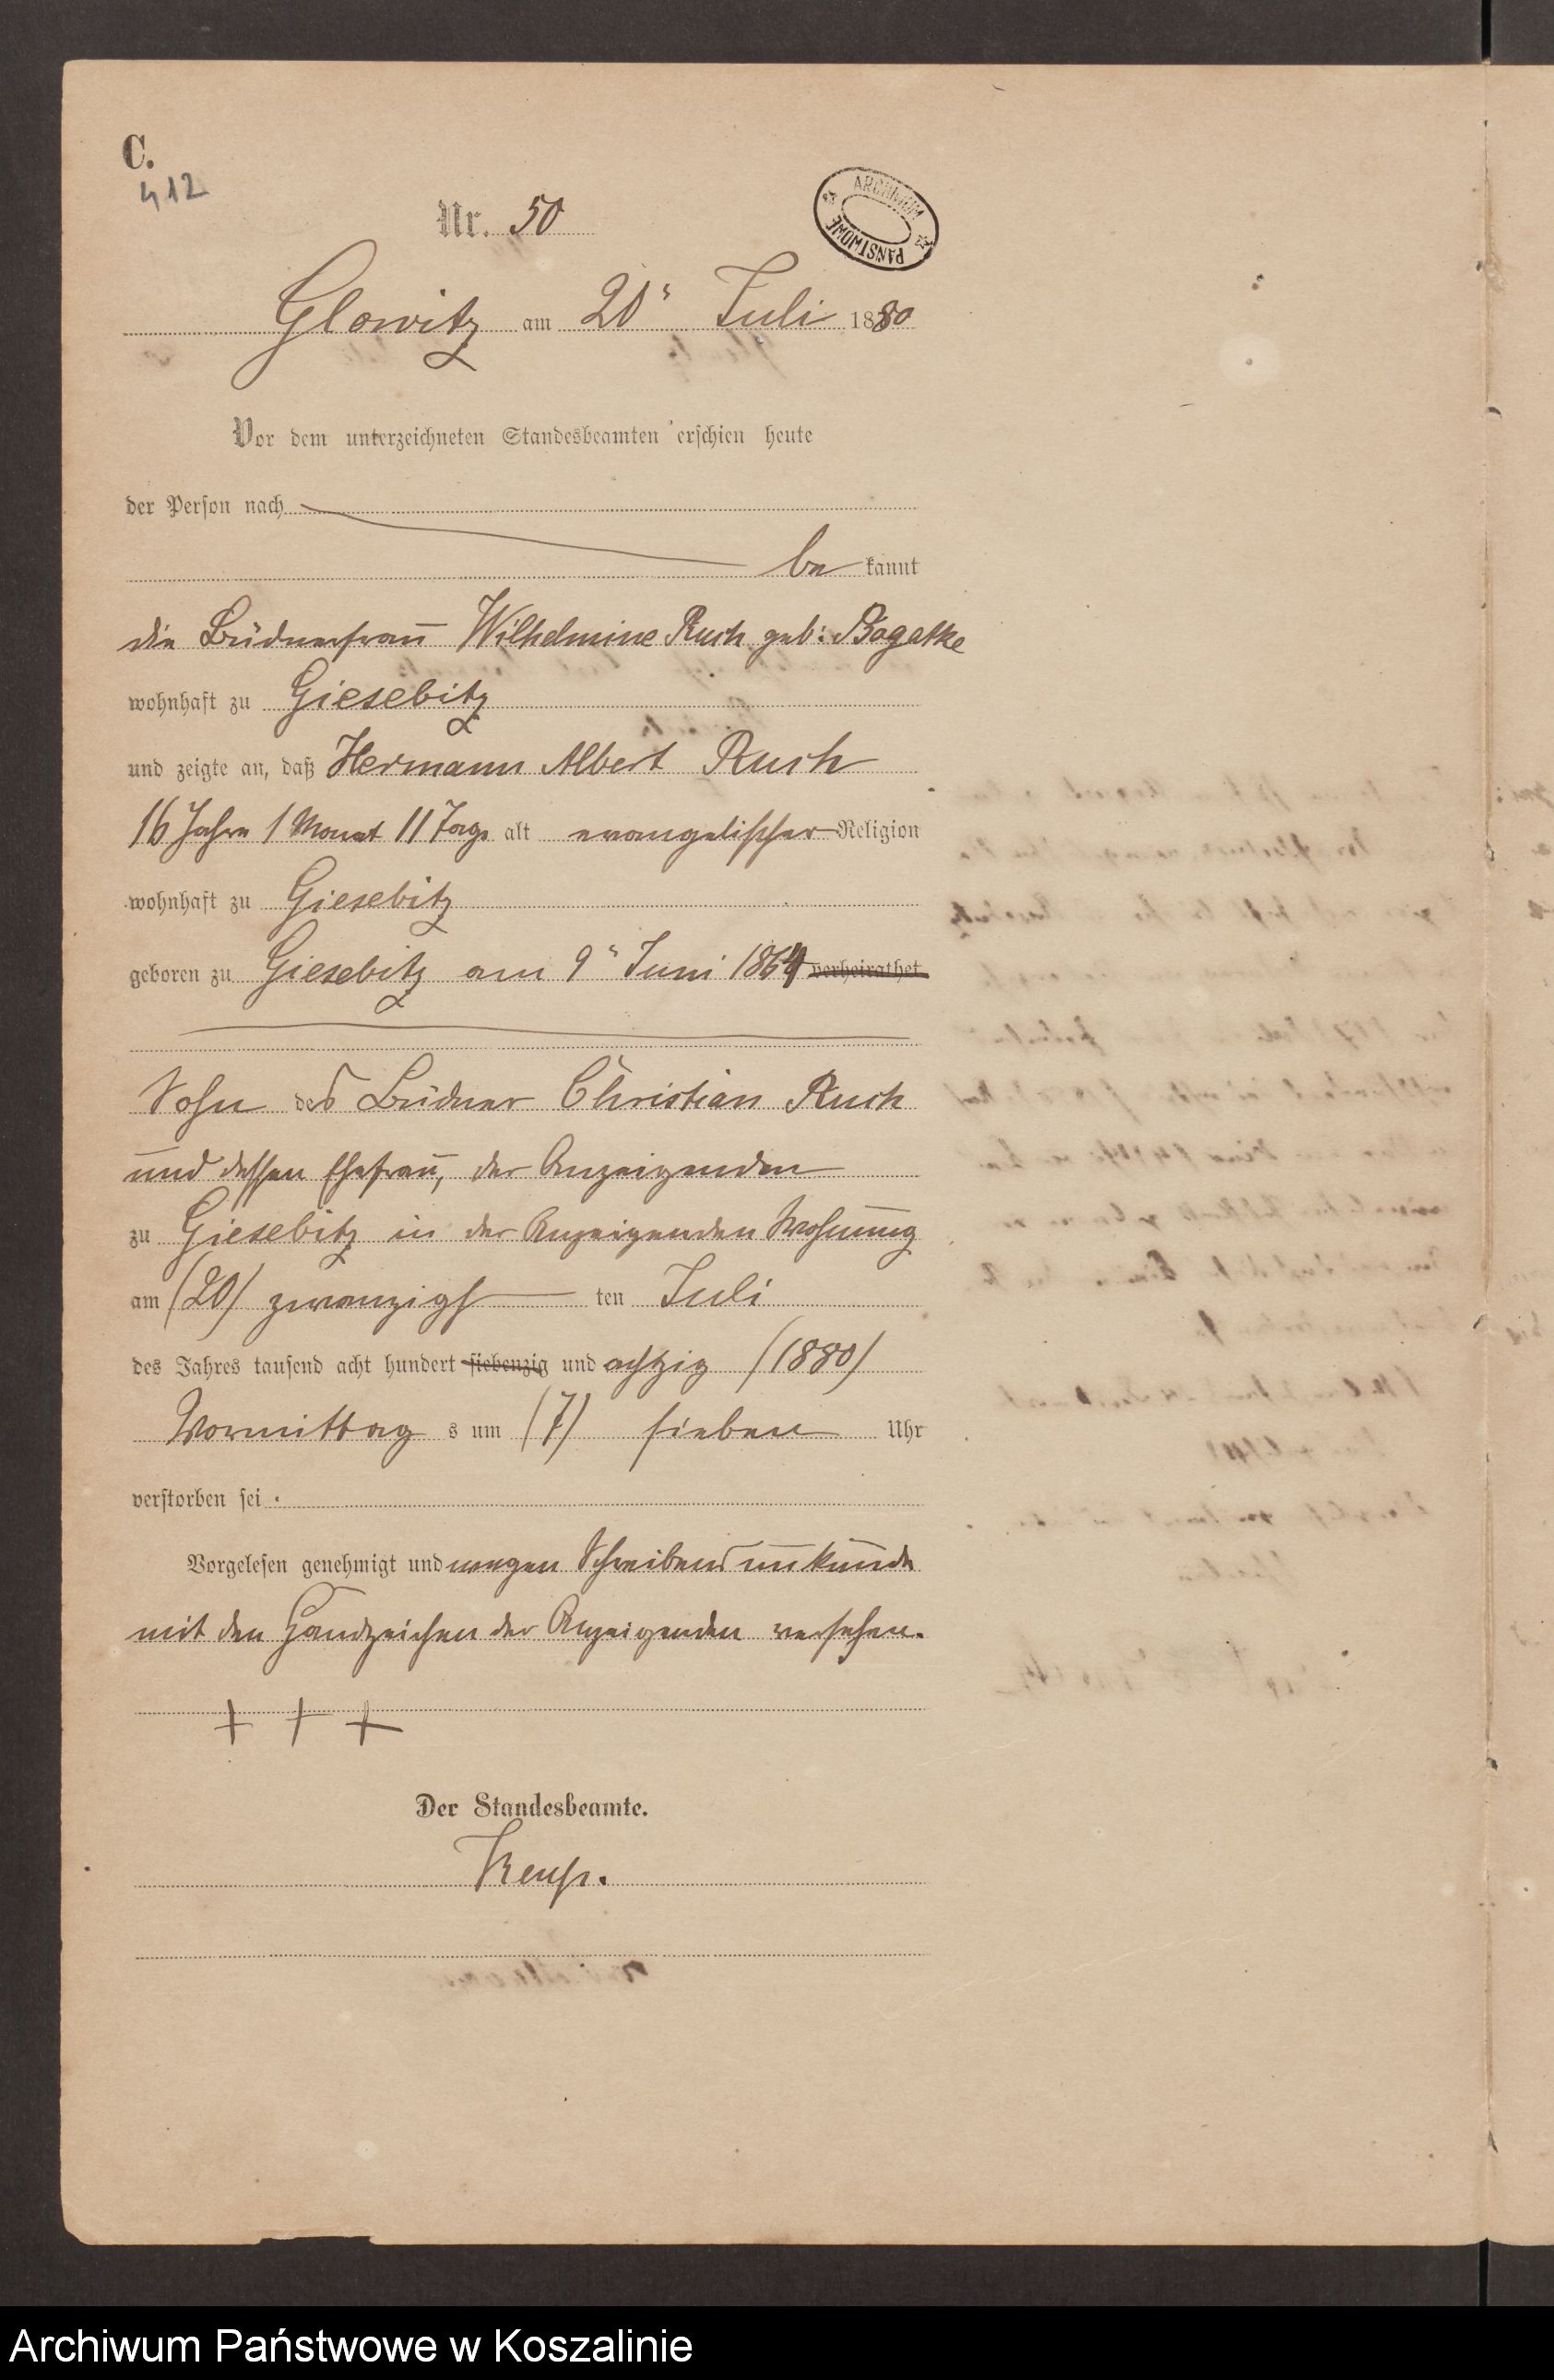 C.
412
Nr. 50
ARCHIWUM PAŃSTWOWE
Glowitz am 20ˢ Juli 1880
Vor dem unterzeichneten Standesbeamten erschien heute
der Person nach
be kannt
die Büdnerfrau Wilhelmine Ruch geb: Bogatke
wohnhaft zu Giesebitz
und zeigte an, daß Hermann Albert Ruch
16 Jahre 1 Monat 11 Tage alt evangelischer Religion
wohnhaft zu Giesebitz
geboren zu Giesebitz am 9ˢ Juni 1864 verheirathet
Sohn des Büdner Christian Ruch
und dessen Ehefrau, der Anzeigenden
zu Giesebitz in der Anzeigenden Wohnung
am (20) zwanzigst ten Juli
des Jahres tausend acht hundert siebenzig und achtzig (1880)
Vormittag s um (7) sieben Uhr
verstorben sei.
Vorgelesen genehmigt und wegen Schreibensunkunde
mit den Handzeichen der Anzeigenden versehen.
+ + +
Der Standesbeamte.
Archiwum Państwowe w Koszalinie